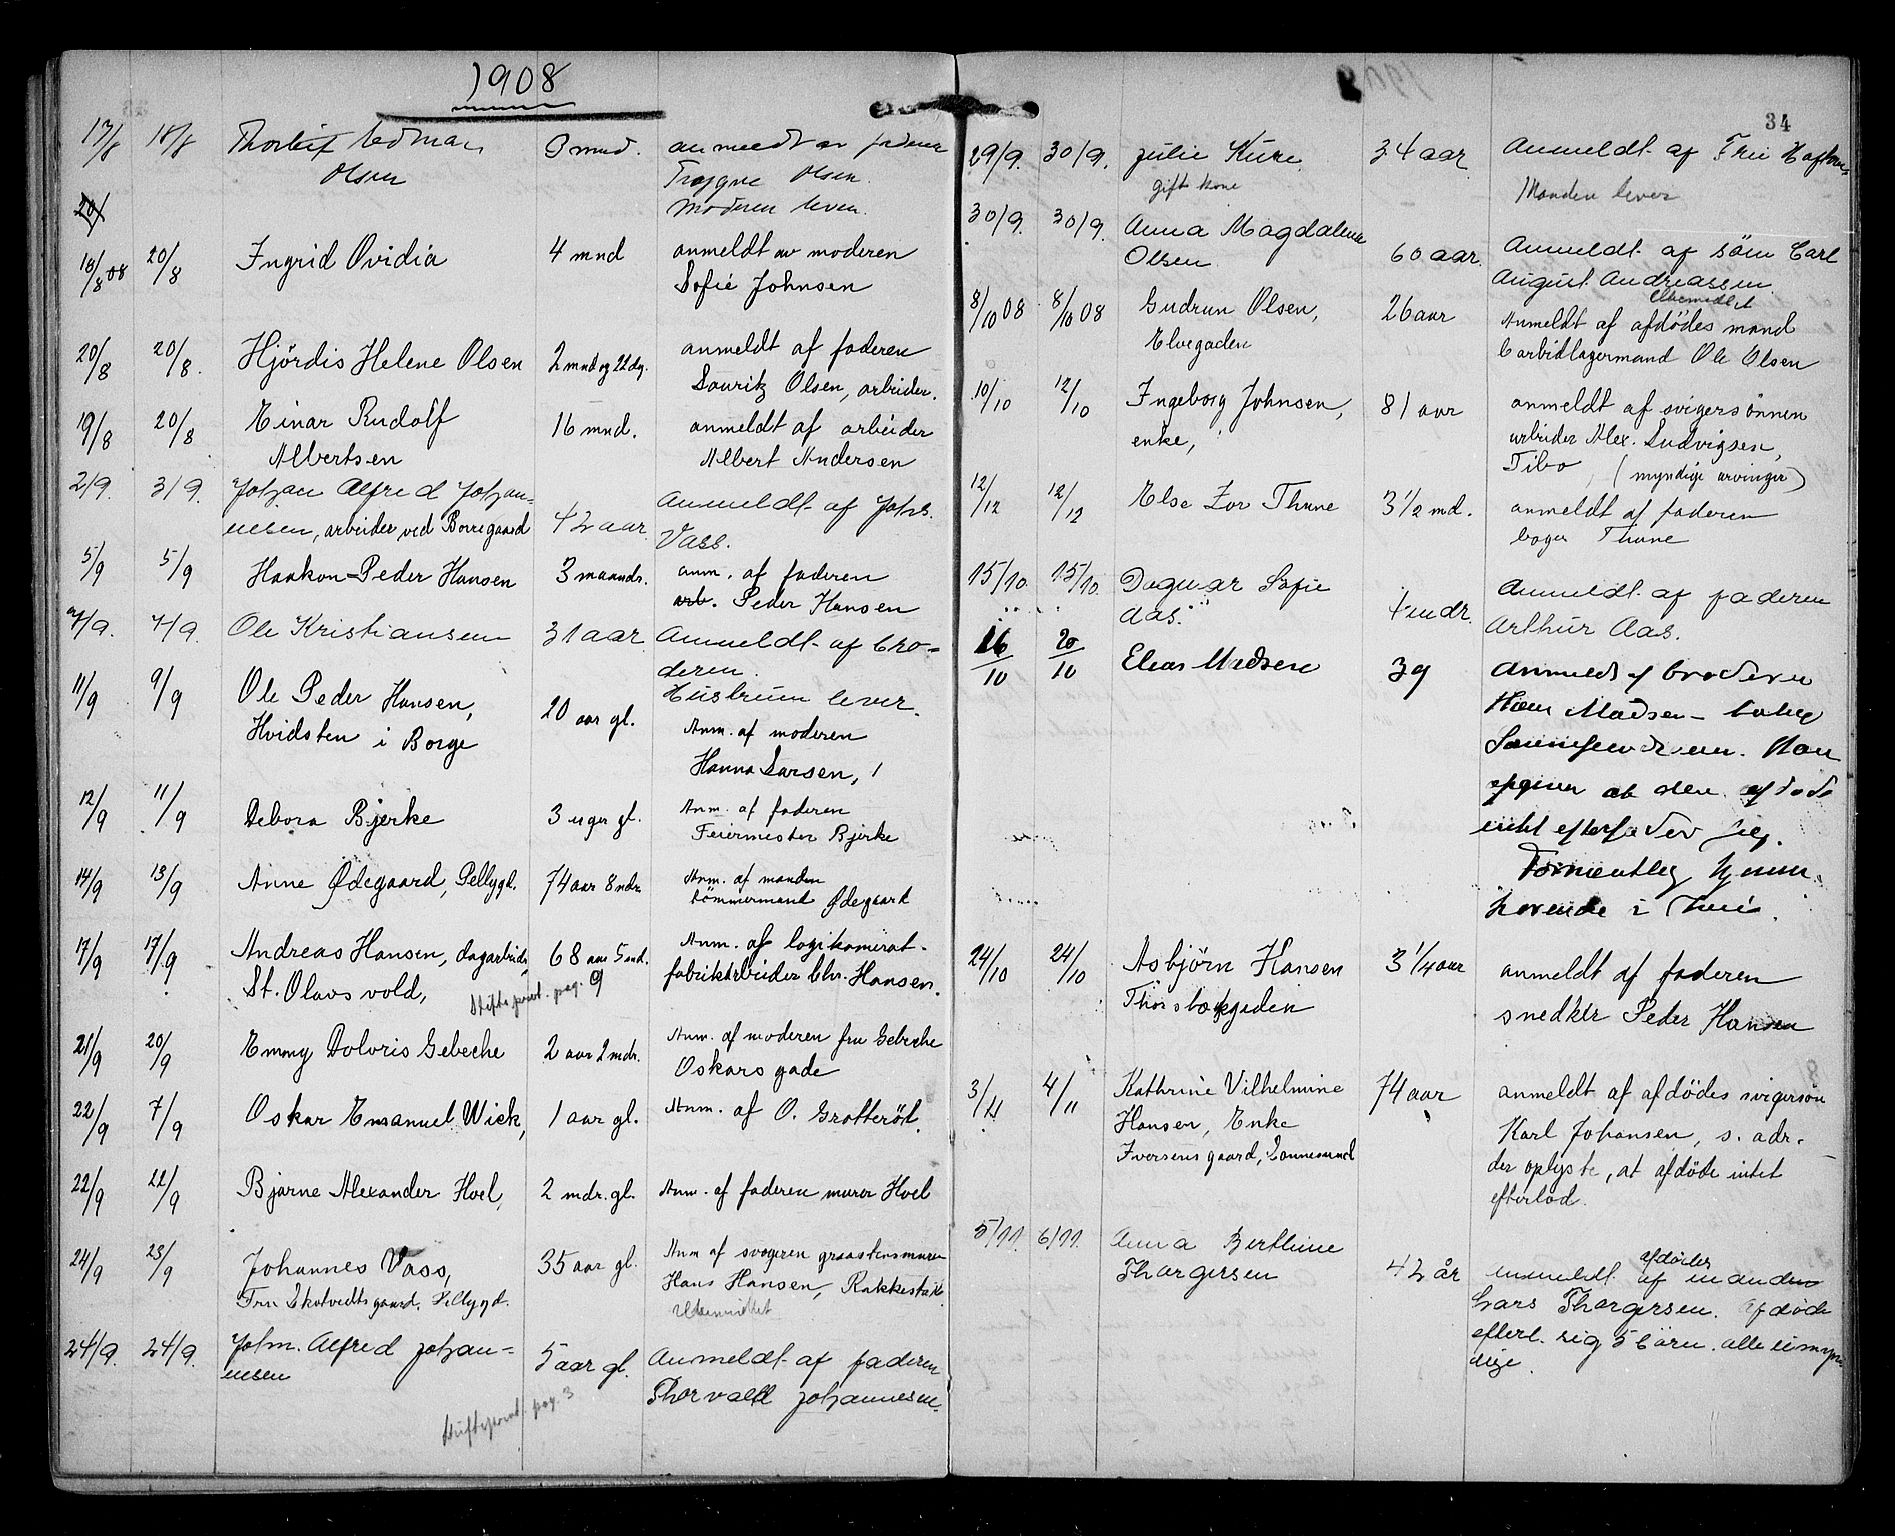 1908
17/8 18/8 Thorleif Edman 3 mnd. anmeldt av faderen
Olsen Trygve Olsen.
Moderen lever.
20/
18/8 08 20/8 Ingrid Ovidia 4 mnd anmeldt av moderen
Sofie Johnsen
20/8 20/8. Hjördis Helene Olsen 2 mnd og 22 dg. anmeldt af faderen
Lauritz Olsen, arbeider.
19/8 20/8 Einar Rudolf 16 mnd. anmeldt af arbeider
Albertsen Albert Andersen
2/9. 3/9. Johan Alfred Johan=
nesen, arbeider ved Borregaard 42 aar Anmeldt af Johs.
Vass.
5/9 5/9 Haakon-Peder Hansen 3 maandr. anm. af faderen
arb. Peder Hansen
7/9. 7/9. Ole Kristiansen 31 aar Anmeldt af bro=
deren.
Hustruen lever.
11/9 9/9 Ole Peder Hansen, 20 aar gl. Anm. af moderen
Hvidsten i Borge Hanna Larsen,
12/9 11/9 Debora Bjerke 3 uger gl. Anm. af faderen
Feiermester Bjerke
14/9 13/9 Anne Ødegaard, Pellygd. 74 aar 8 mdr. Anm. af manden
tömmermand Ødegaard
17/9 17/9 Andreas Hansen, dagarbeider, 68 aar 5 md. Anm. af logikamerat-
St. Olavs vold, fabrikarbeider Chr. Hansen.
Skifteprot. pag. 9
21/9 20/9 Emmy Doloris Gebeche 2 aar 2 mdr. Anm. af moderen fru Gebeche
Oskars gade
22/9 7/9 Oskar Emanuel Wick, 1 aar gl. Anm. af O. Grotteröd.
22/9 22/9 Bjarne Alexander Hoel, 2 mdr. gl. Anm. af faderen murer Hoel
24/9 23/9 Johannes Vass, 35 aar gl. Anm af svogeren graastensmurer
Fru Skotvedts gaard, Pellygd. Hans Hansen, Rakkestad
Ubemidlet
24/9. 24/9. John. Alfred Johan=
nesen 5 aar gl. Anmeldt af faderen
Thorvald Johannesen.
Skifteprot. pag. 3
34
29/9. 30/9. Julie Kure. 34 aar Anmeldt af Fru Hafthn
gift kone Manden lever
30/9. 30/9. Anna Magdalena
Olsen 60 aar. Anmeldt af søn Carl
August Andreassen.
Ubemidlet
8/10 08 8/10 08 Gudrun Olsen, 26 aar Anmeldt af afdödes mand
Elvegaden Carbidlagermand Ole Olsen
10/10 12/10 Ingeborg Johnsen, 81 aar anmeldt af svigersönnen
enke, arbeider Alex. Ludvigsen,
Tibo (myndige arvinger)
12/12 12/12 Else Lov Thune 3 1/2 md. anmeldt af faderen
bager Thune
15/10. 15/10. Dagmar Sofie
Aas. 4 mdr. Anmeldt af faderen
Arthur Aas.
16/10 20/10 Elias Madsen 39 Anmeldt af broderen
Madsen
Han
opgiver at den afdøde
intet efterlader sig.
Formentlig hjemm
hørende i Thune.
24/10 24/10 Asbjörn Hansen 3 1/4 aar anmeldt af faderen
Thorsbækgaden snedker Peder Hansen
3/11 4/11 Kathrine Vilhelmine 74 aar anmeldt af afdödes svigersön
Hansen, Enke Karl Johansen, s. adr.
Iversens gaard, Sannesund der oplyste, at afdöde intet
efterlod.
5/11. 6/11. Anna Berthine
Thorgersen 42 år anmeldt af afdödes manden
Lars Thorgersen. Afdöde
efterl. sig 5 börn. alle umyn-
dige.